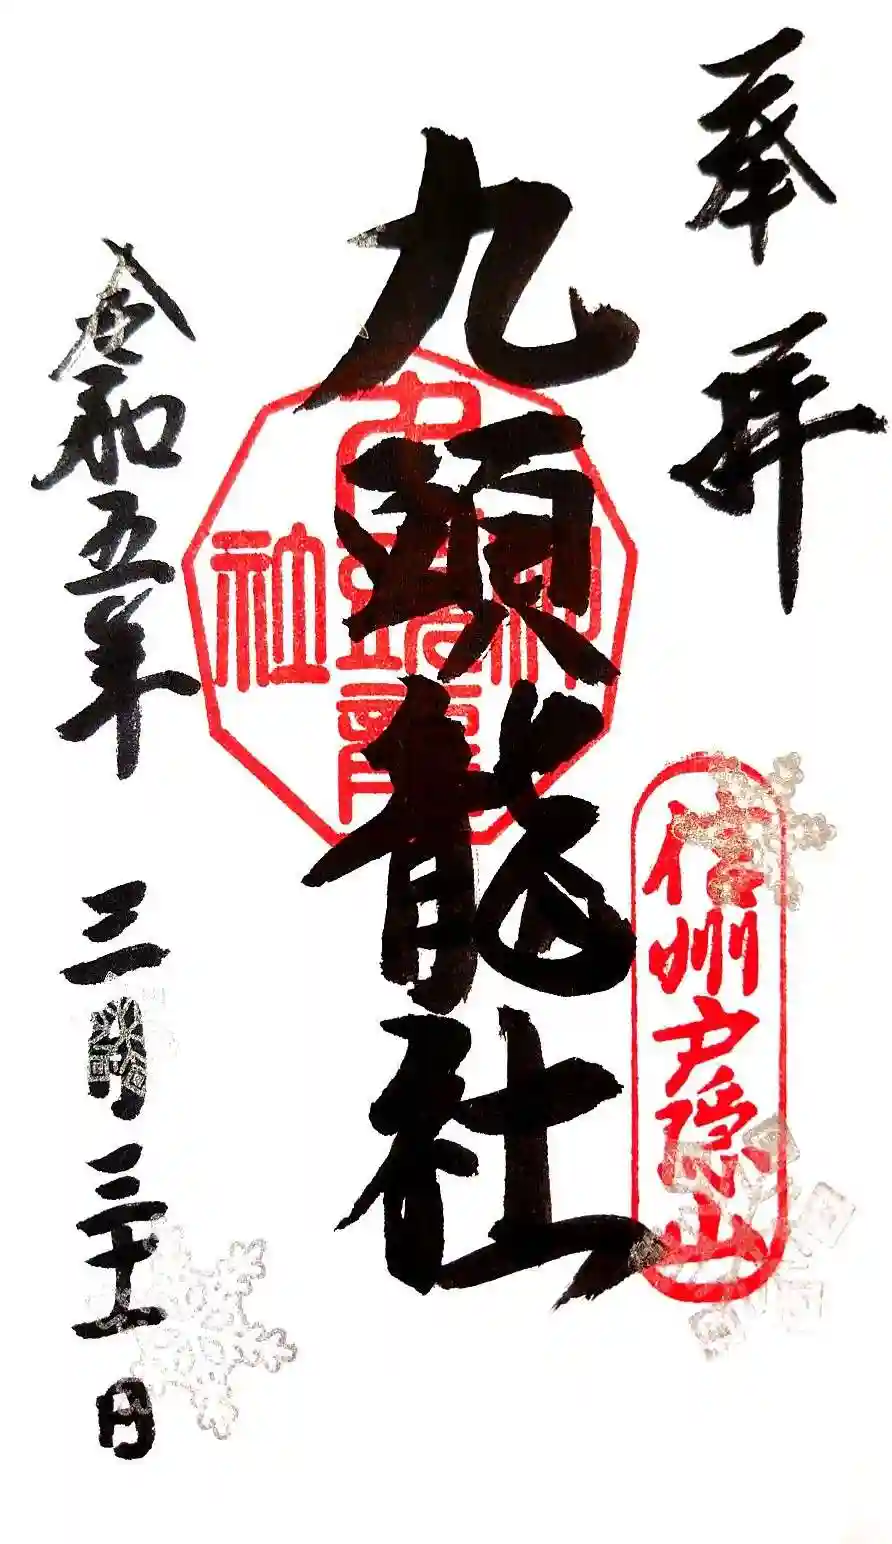 奉拝
九頭龍社
九頭龍神社
信州戸隠山
令和五年 三月三十一日